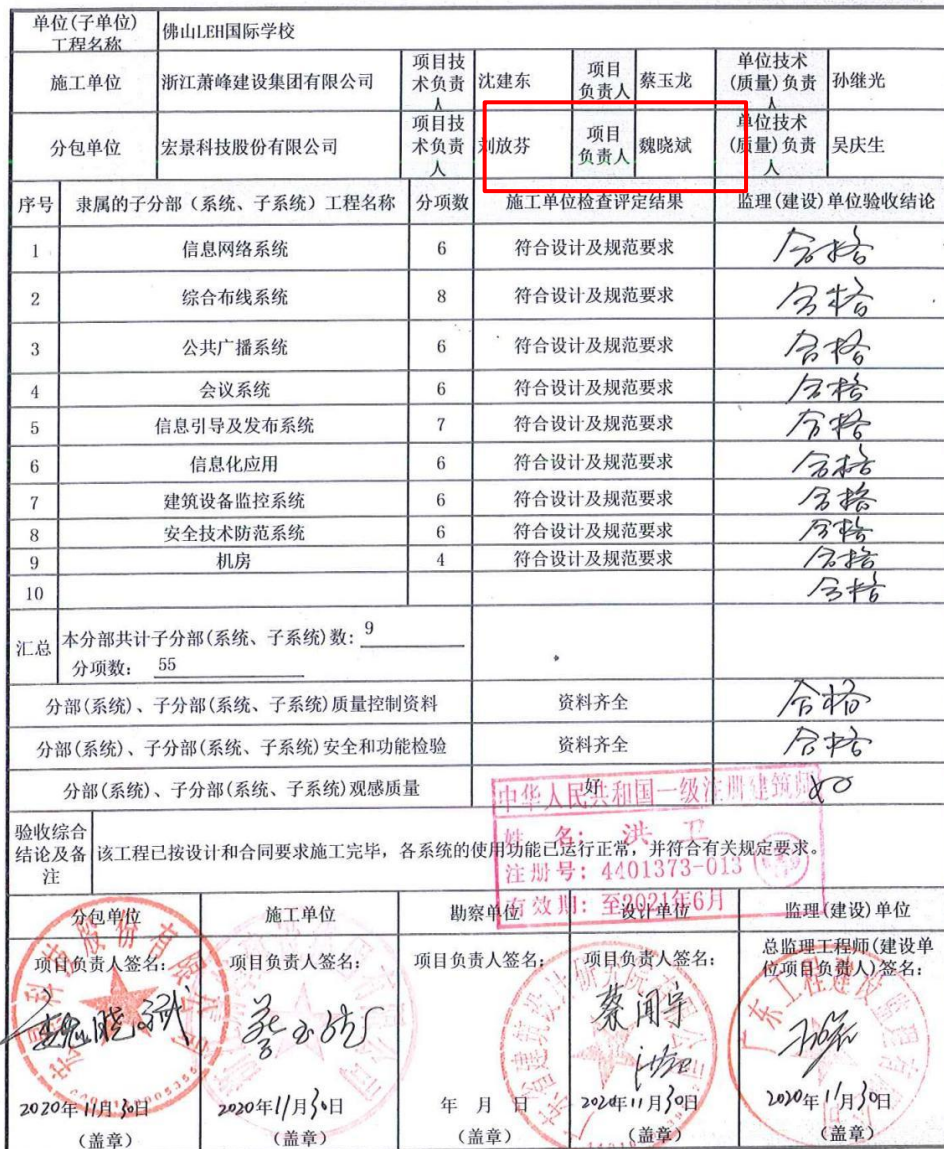 单位(子单位)
工程名称
佛山LEH国际学校
施工单位
浙江萧峰建设集团有限公司
项目技
术负责
人
沈建东
项目
负责人
蔡玉龙
单位技术
(质量)负责
人
孙继光
分包单位
宏景科技股份有限公司
项目技
术负责
人
刘放芬
项目
负责人
魏晓斌
单位技术
(质量)负责
人
吴庆生
序号 隶属的子分部（系统、子系统）工程名称 分项数 施工单位检查评定结果 监理(建设)单位验收结论
1 信息网络系统 6 符合设计及规范要求 合格
2 综合布线系统 8 符合设计及规范要求 合格
3 公共广播系统 6 符合设计及规范要求 合格
4 会议系统 6 符合设计及规范要求 合格
5 信息引导及发布系统 7 符合设计及规范要求 合格
6 信息化应用 6 符合设计及规范要求 合格
7 建筑设备监控系统 6 符合设计及规范要求 合格
8 安全技术防范系统 6 符合设计及规范要求 合格
9 机房 4 符合设计及规范要求 合格
10 合格
汇总
本分部共计子分部(系统、子系统)数: 9
分项数: 55
分部(系统)、子分部(系统、子系统)质量控制资料 资料齐全 合格
分部(系统)、子分部(系统、子系统)安全和功能检验 资料齐全 合格
分部(系统)、子分部(系统、子系统)观感质量 好 好
中华人民共和国一级注册建筑师
姓 名: 洪卫
注册号: 4401373-013
有效期: 至2021年6月
验收综合
结论及备
注
该工程已按设计和合同要求施工完毕，各系统的使用功能已运行正常，并符合有关规定要求。
分包单位 施工单位 勘察单位 设计单位 监理(建设)单位
项目负责人签名: 项目负责人签名: 项目负责人签名: 项目负责人签名: 总监理工程师(建设单
位项目负责人)签名:
魏晓斌 蔡玉龙 蔡闻宇
2020年11月30日 2020年11月30日 年 月 日 2020年11月30日 2020年11月30日
(盖章) (盖章) (盖章) (盖章) (盖章)